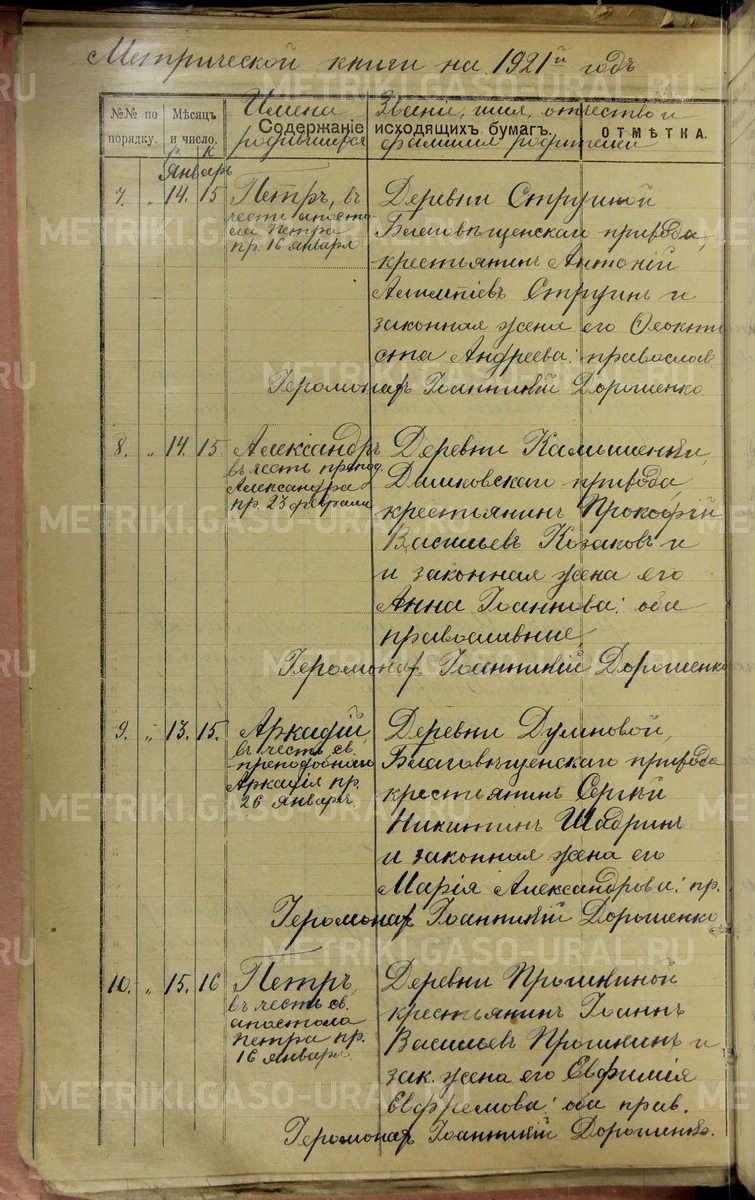 Метрической книги на 1921й годъ
№№ по порядку.
Мѣсяцъ и число.
Содержаніе исходящихъ бумагъ.
ОТМѢТКА.
Имена родившихся
Званіе, имя, отчество и фамилия родителей
Январь
7. " 14. 15
Петръ, въ
чести апосто
ла Петра
пр. 16 января
Деревни Струиной
Благовѣщенскаго прихода,
крестьянинъ Антоній
Алимпіевъ Струинъ и
законная жена его Ѳеокти
ста Андреева: православ
Іеромонах Іоанникій Дорошенко
8. " 14. 15
Александръ
въ честь препод.
Александра
пр. 23 февраля
Деревни Камышенки,
прихода,
крестьянинъ Прокофій
Васильевъ Козаковъ и
и законная жена его
Анна Іоаннова: оба
православные,
Іеромонах Іоанникій Дорошенко
9. " 13. 15.
Аркадій,
въ честь св.
преподобнаго
Аркадія пр.
26 января
Деревни Думновой,
Благовѣщенскаго прихода
крестьянинъ Сергѣй
Никитинъ Шадринъ
и законная жена его
Марія Александрова: пр.
Іеромонах Іоанникій Дорошенко
10. " 15. 16
Петръ,
въ честь св.
апостола
Петра пр.
16 января
Деревни Прошкиной
крестьянинъ Іоаннъ
Васильевъ Прошкинъ и
зак. жена его Евфимія
Евфремова: оба прав.
Іеромонах Іоанникій Дорошенко.
METRIKI.GASO-URAL.RU